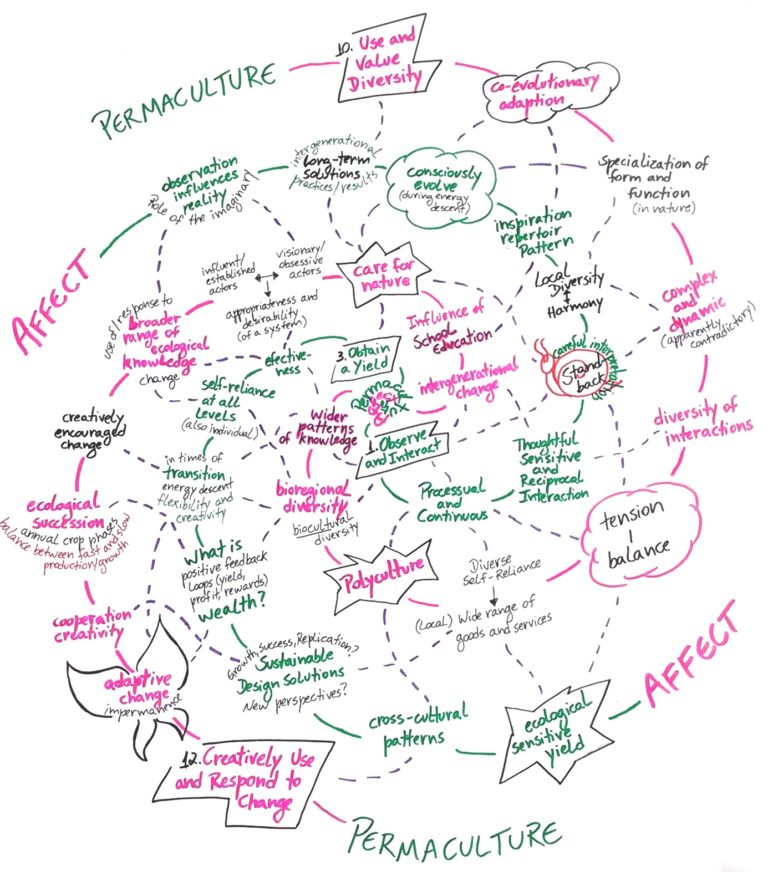 10. Use and
Value
Diversity
PERMACULTURE
co-evolutionary
adaption
intergenerational
long-term
solutions
practices/results
observation
influences
reality
Role of the imaginary
consciously
evolve
(during energy
descent)
Specialization of
form and
function
(in nature)
inspiration
repertoir
Pattern
AFFECT
influent/
established
actors
visionary/
obsessive
actors
care for
nature
Local
Diversity
+
Harmony
appropriateness and
desirability
(of a system)
use of/response to
broader
range of
ecological
knowledge
change
Influence of
School
Education
complex
and
dynamic
(apparently
contradictory)
efective-
ness
3. Obtain
a Yield
careful interpretation
Stand
back
self-reliance
at all
levels
(also individual)
intergenerational
change
creatively
encouraged
change
Wider
patterns
of knowledge
1. Observe
and Interact
diversity of
interactions
in times of
transition
energy descent
flexibility and
creativity
Thoughtful
Sensitive
and
Reciprocal
Interaction
ecological
succession
annual crop phases
balance between fast and slow
production/growth
bioregional
diversity
biocultural
diversity
Processual
and
Continuous
tension
|
balance
What is
positive feedback
Loops (yield,
profit, rewards)
wealth?
Polyculture
Diverse
Self-Reliance
(Local) Wide range of
goods and services
cooperation
creativity
Growth, success, Replication?
Sustainable
Design Solutions
New perspectives?
adaptive
change
impermanence
AFFECT
cross-cultural
patterns
ecological
sensitive
yield
12. Creatively Use
and Respond to
Change
PERMACULTURE